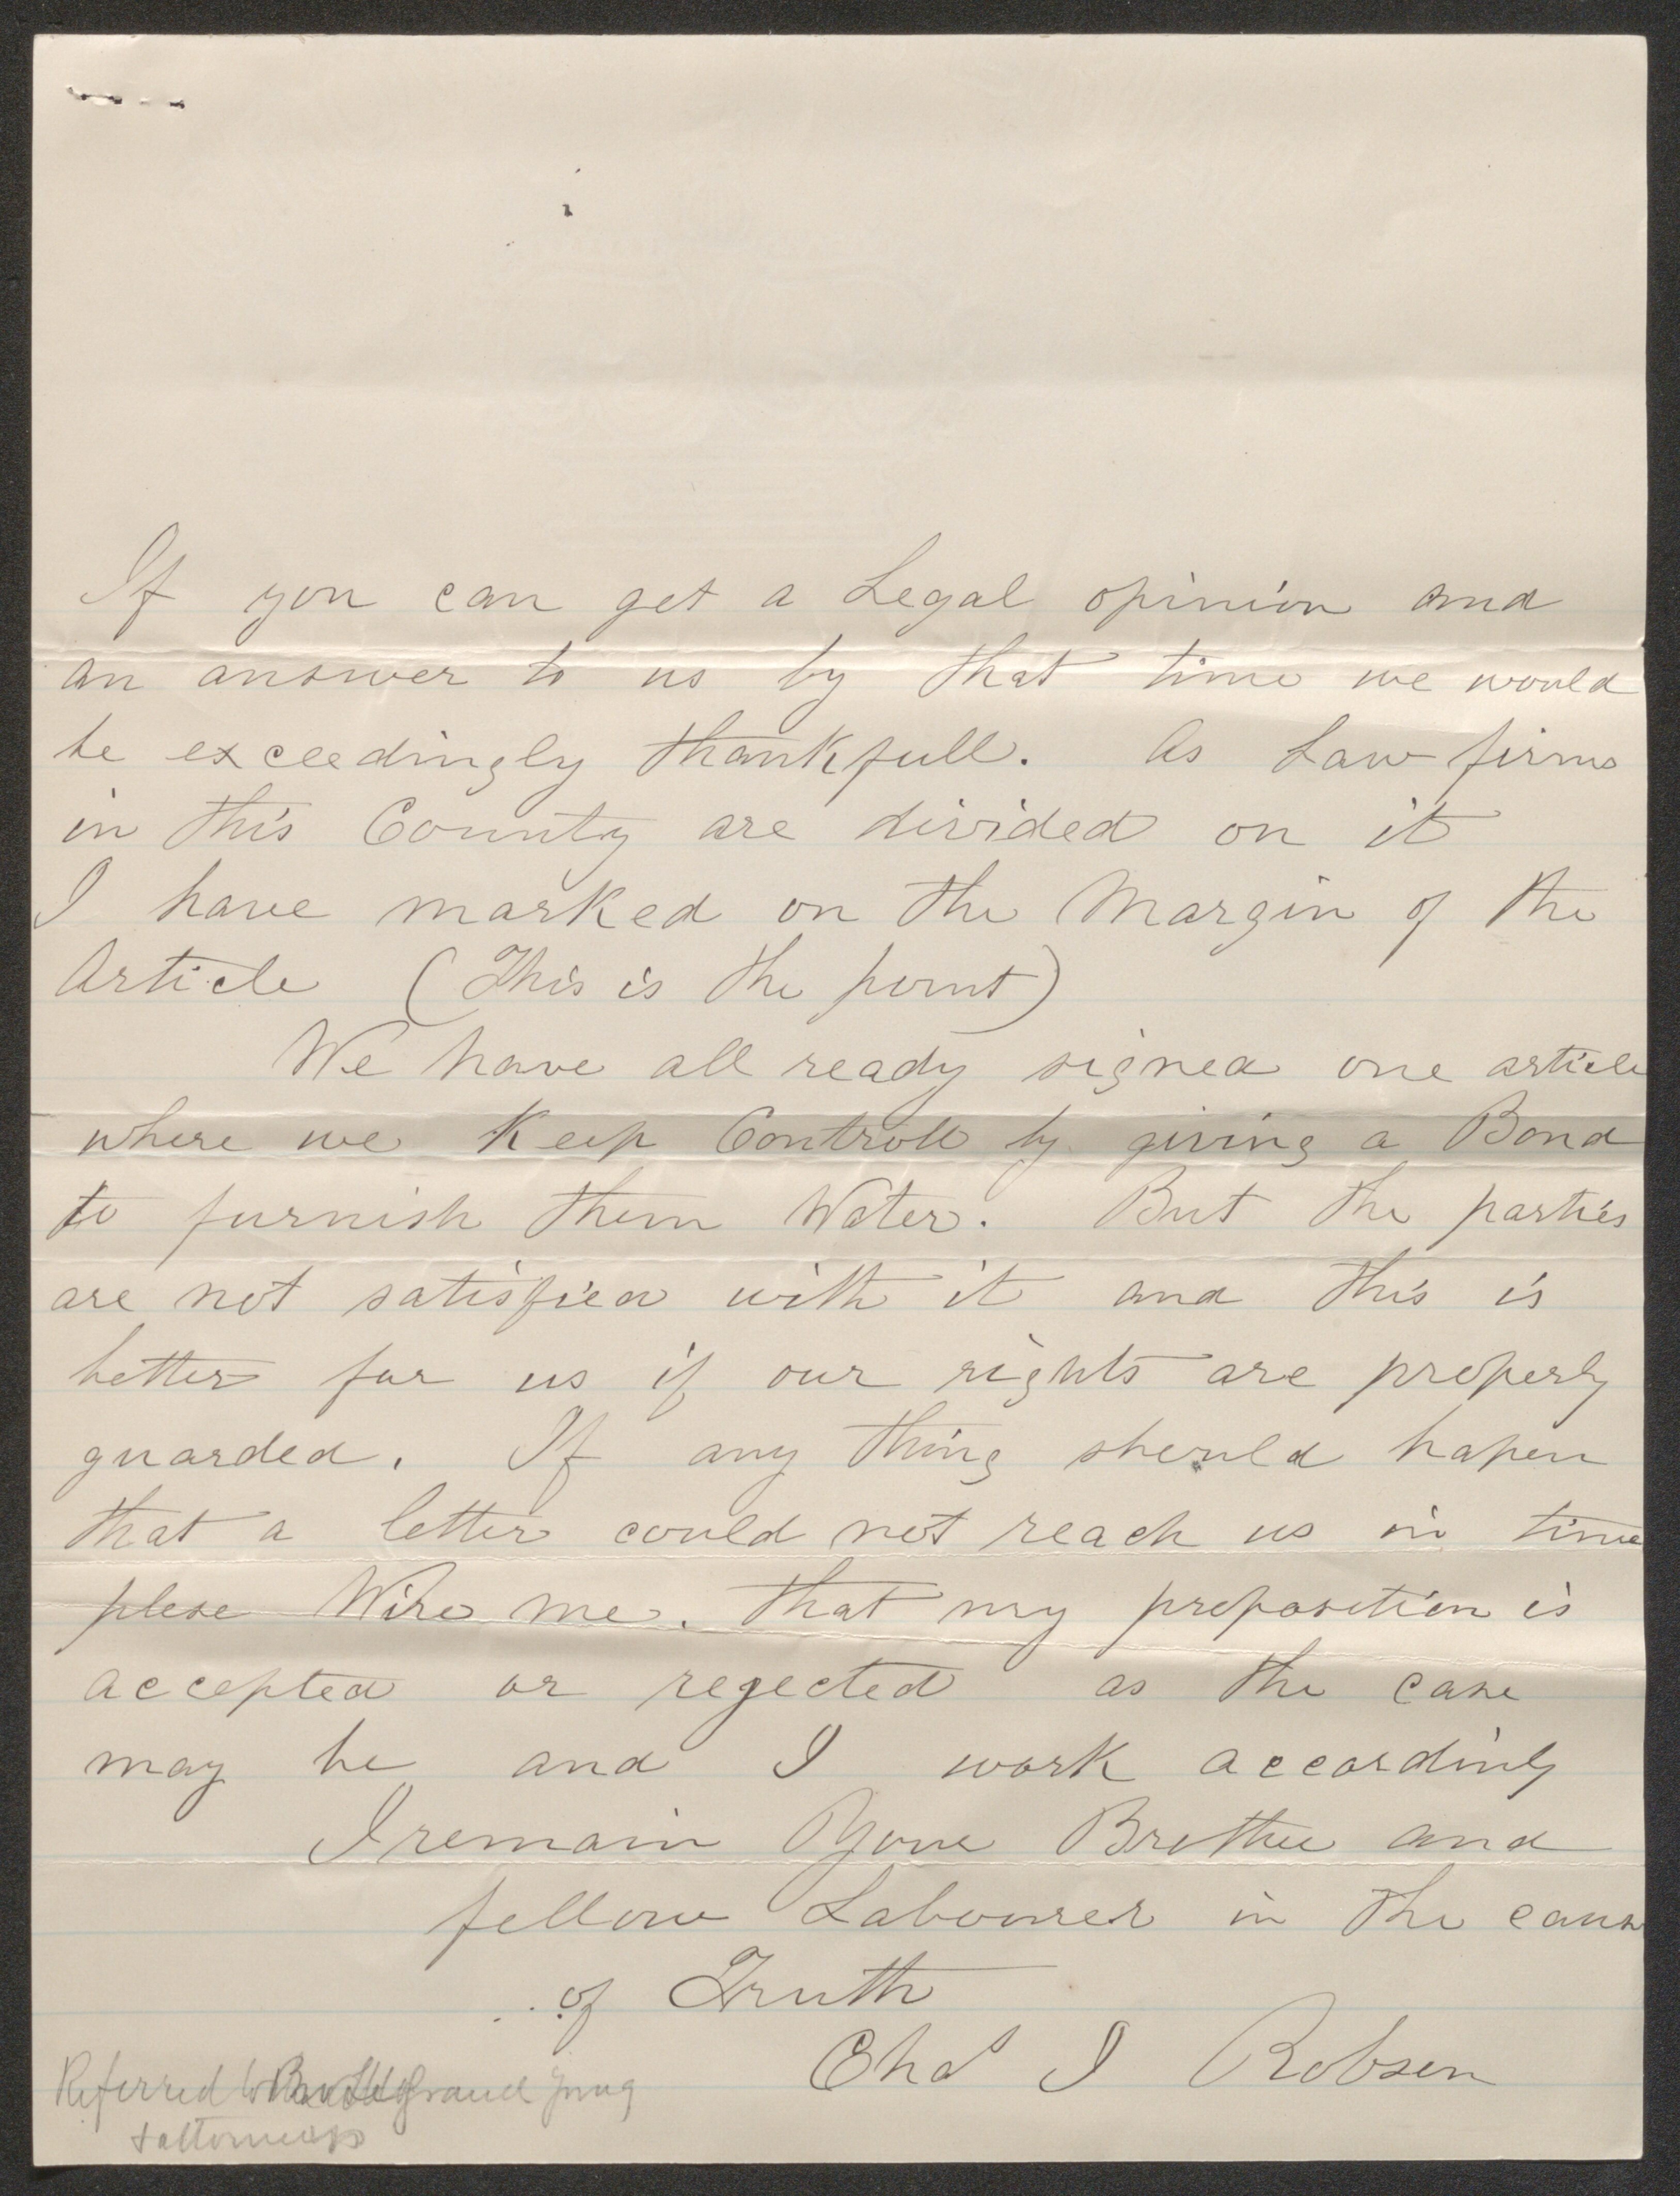 If you can get a Legal opinion and
an answer to us by that time we would
be exceedingly thankfull. As Law firms
in this County are divided on it
I have marked on the Margin of the
Article (This is the point)
We have all ready signed one article
where we Keep Controll by giving a Bond
to furnish them Water. But the parties
are not satisfied with it and this is
better for us if our rights are properly
guarded. If any thing should hapen
that a letter could not reach us in time
plese Wire me. that my proposition is
accepted or regected as the case
may be and I work accordinly
I remain Your Brother and
fellow Labourer in the cause
of Truth
Chas I Robson
Referred to Young
& attorneys